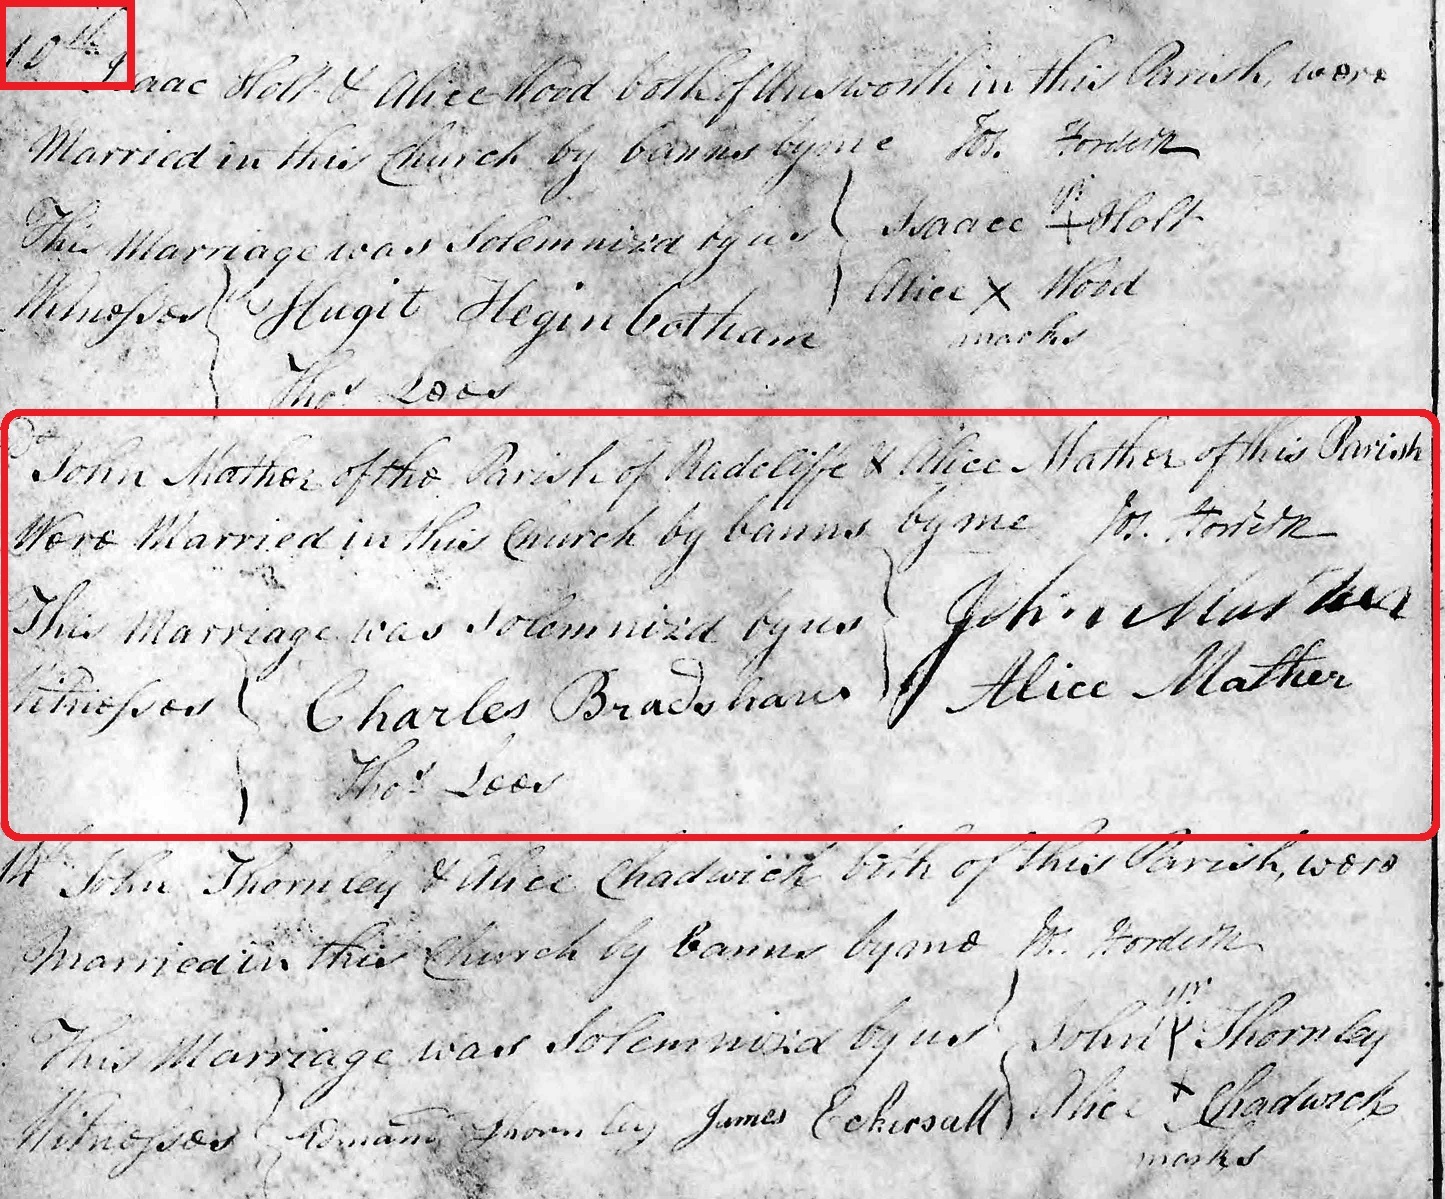 10th Isaac Holt & Alice Wood both of Unsworth in this Parish, were
Married in this Church by banns by me Jos. Fordein
This Marriage was Solemnized by us Isaace + Holt
Witnesses Hugit Heginbotham Alice X Wood
marks
Thos Lees
Do John Mather of the Parish of Radcliffe & Alice Mather of this Parish
Were Married in this Church by banns by me Jos.
This Marriage was Solemnizd by us John Mather
Witnesses Charles Bradshaw Alice Mather
Thos Lees
14th John Thornley & Alice Chadwick both of this Parish, were
Married in this Church by Banns by me Jos.
This Marriage was Solemnizd by us John Thornley
Witnesses Edmund Thornley James Eckersall Alice + Chadwick
marks